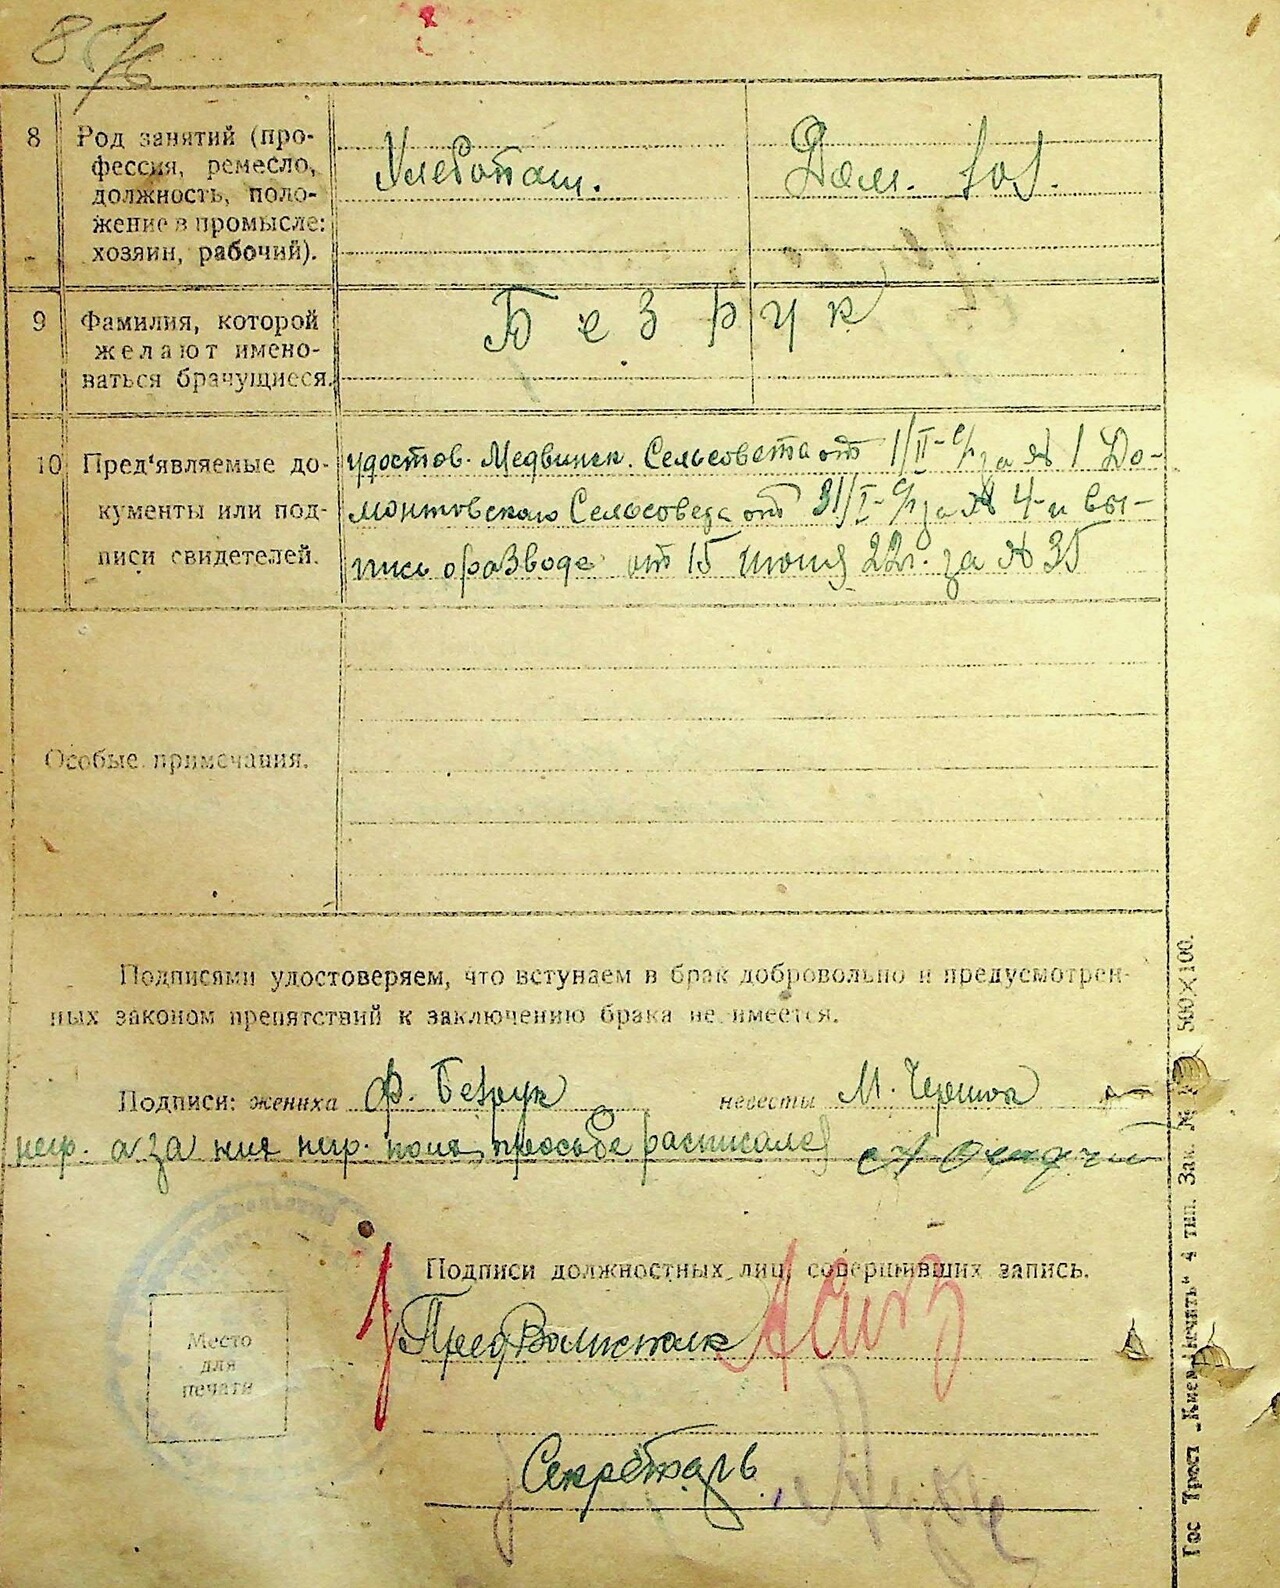 8
Род занятий (про-
фессия, ремесло,
должность, поло-
жение в промысле:
хозяин, рабочий).
Хлебопаш.
Дом. хоз.
9
Фамилия, которой
желают имено-
ваться брачущиеся.
Безрук
10
Пред'являемые до-
кументы или под-
писи свидетелей.
удостов. Медвинск. Сельсовета от 1/II- с/г за № 1 До-
монтовского Сельсовета от 31/I- с/г за № 4 и вы-
пись о разводе от 15 июня 22г. за № 35
Особые примечания.
Подписями удостоверяем, что вступаем в брак добровольно и предусмотрен-
ных законом препятствий к заключению брака не имеется.
Подписи: жениха Ф. Безрук невесты М. Черниш а
негр. а за ния негр. по их просьбе расписался
Подписи должностных лиц, совершивших запись.
Пред Волисполк
Место
для
печати
Секретарь
Гос Трест „Киев-Печать“ 4 тип. Зак. № 500×100.